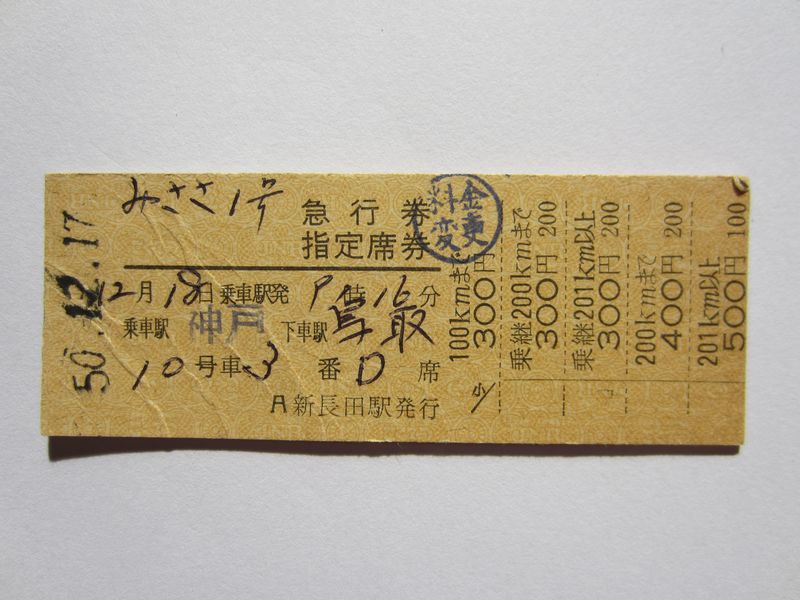 50.12.17
みささ1号
急行券
指定席券
料金変更
12月18日乗車駅発9時16分
乗車駅 神戸 下車駅 鳥取
10号車3番D席
A新長田駅発行
100kmまで 300円
乗継200kmまで 300円 200
乗継201km以上 300円 200
200kmまで 400円 200
201km以上 500円 100